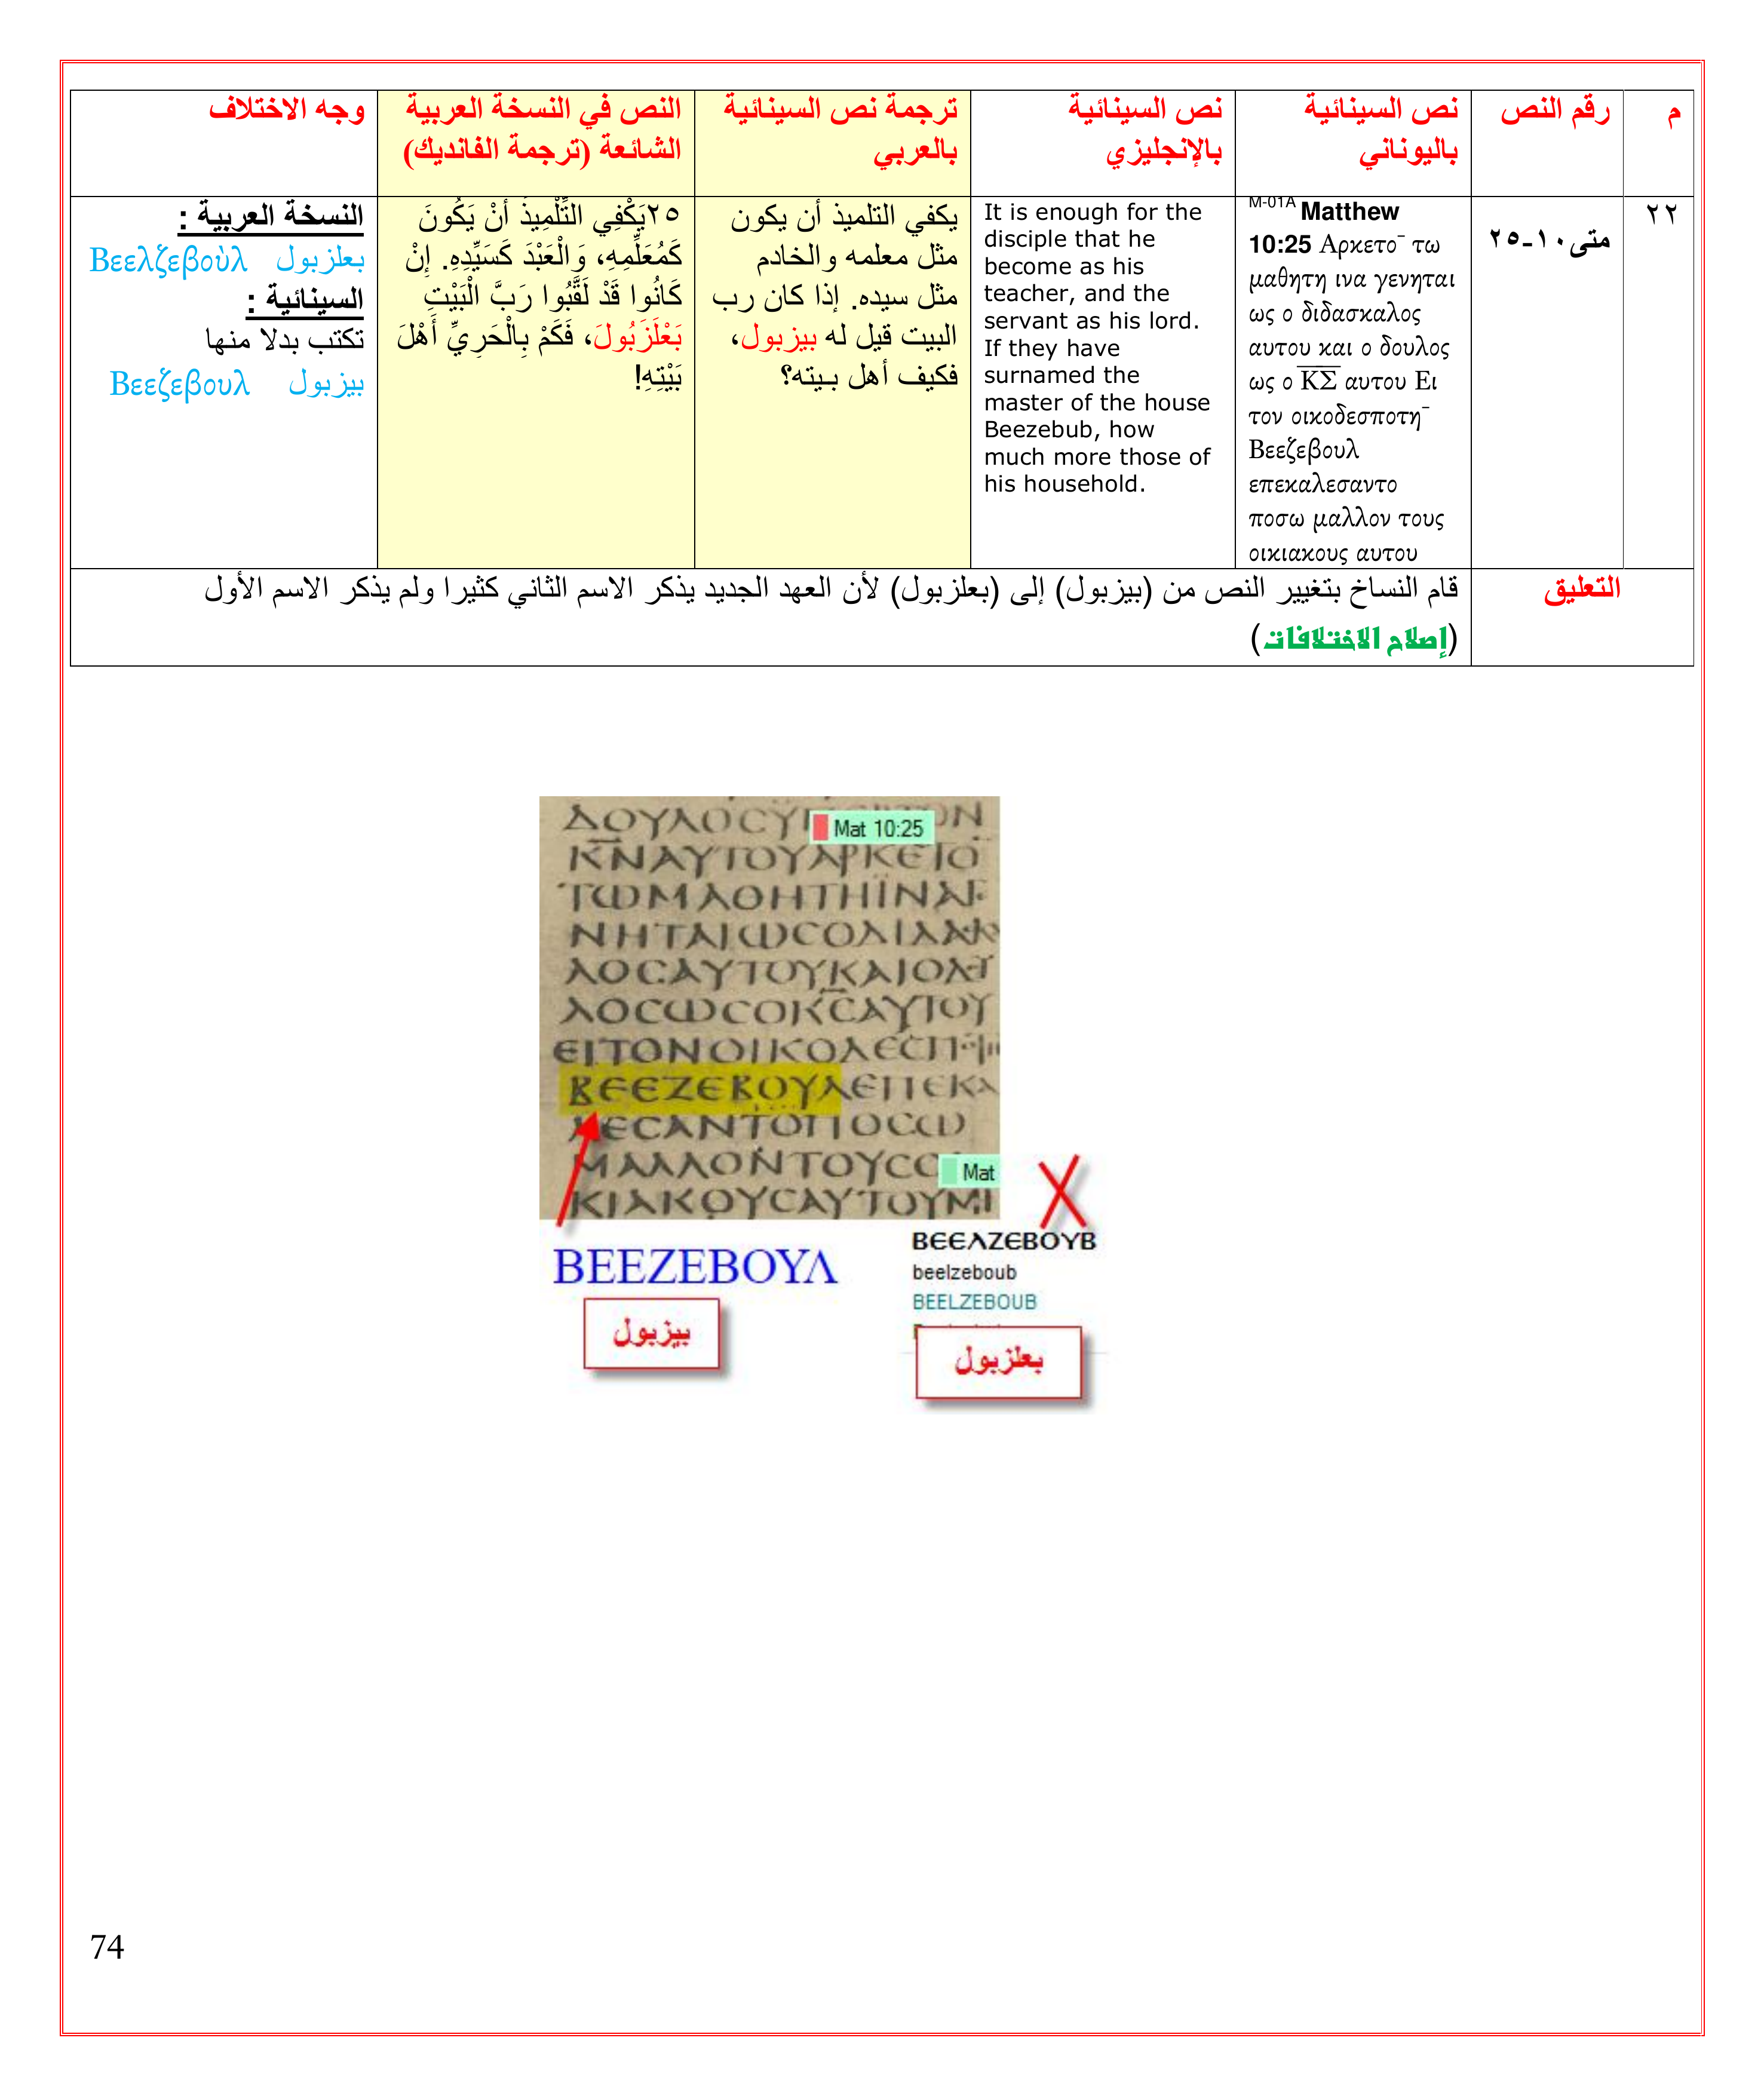 م
رقم النص
نص السينائية
باليوناني
نص السينائية
بالإنجليزي
ترجمة نص السينائية
بالعربي
النص في النسخة العربية
الشائعة (ترجمة الفانديك)
وجه الاختلاف
٢٢
متى١٠-٢٥
M-01A Matthew
10:25 Αρκετο‾ τω
μαθητη ινα γενηται
ως ο διδασκαλος
αυτου και ο δουλος
ως ο ΚΣ αυτου Ει
τον οικοδεσποτη‾
Βεεζεβουλ
επεκαλεσαντο
ποσω μαλλον τους
οικιακους αυτου
It is enough for the
disciple that he
become as his
teacher, and the
servant as his lord.
If they have
surnamed the
master of the house
Beezebub, how
much more those of
his household.
يكفي التلميذ أن يكون
مثل معلمه والخادم
مثل سيده. إذا كان رب
البيت قيل له بيزبول،
فكيف أهل بيته؟
٢٥يَكْفِي التِّلْمِيذَ أَنْ يَكُونَ
كَمُعَلِّمِهِ، وَالْعَبْدَ كَسَيِّدِهِ. إِنْ
كَانُوا قَدْ لَقَّبُوا رَبَّ الْبَيْتِ
بَعْلَزَبُولَ، فَكَمْ بِالْحَرِيِّ أَهْلَ
بَيْتِهِ!
النسخة العربية :
بعلزبول Βεελζεβοὺλ
السينائية :
تكتب بدلا منها
بيزبول Βεεζεβουλ
التعليق
قام النساخ بتغيير النص من (بيزبول) إلى (بعلزبول) لأن العهد الجديد يذكر الاسم الثاني كثيرا ولم يذكر الاسم الأول
(إصلاح الاختلافات)
Mat 10:25
ΚΝΑΥΤΟΥΑΡΚΕΤΟ
ΤΩΜΑΘΗΤΗΪΝΑΓΕ
ΝΗΤΑΙΩϹΟΔΙΔΑϹΚΑ
ΛΟϹΑΥΤΟΥΚΑΙΟΔΟΥ
ΛΟϹΩϹΟΚϹΑΥΤΟΥ
ΕΙΤΟΝΟΙΚΟΔΕϹΠ
ΒΕΕΖΕΒΟΥΛΕΠΕΚΑ
ΛΕϹΑΝΤΟΠΟϹΩ
ΜΑΛΛΟΝΤΟΥϹ
Mat
ΚΙΑΚΟΥϹΑΥΤΟΥΜΗ
ΒΕΕΖΕΒΟΥΛ
بيزبول
ΒΕΕΛΖΕΒΟΥΒ
beelzeboub
BEELZEBOUB
بعلزبول
74